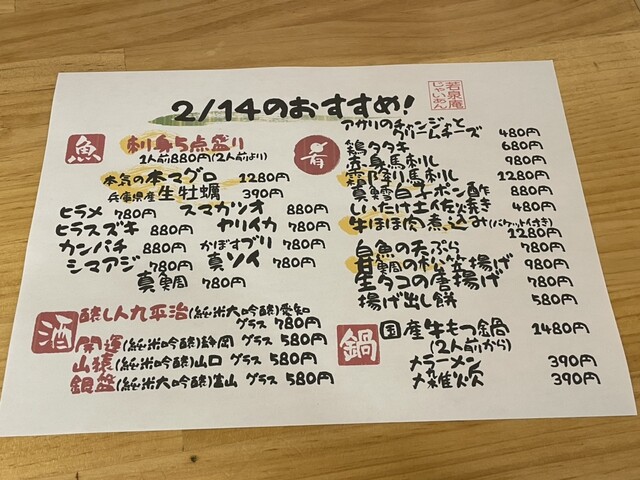 2/14のおすすめ!
若泉庵
じゃいあん
魚
刺身5点盛り
1人前880円(2人前より)
本気の本マグロ 1280円
兵庫県産生牡蠣 390円
ヒラメ 780円 スマガツオ 880円
ヒラスズキ 880円 ヤリイカ 780円
カンパチ 880円 かぼすブリ 780円
シマアジ 780円 真ソイ 780円
真鯛 780円
酒
醸し人九平治(純米大吟醸)愛知
グラス 780円
開運(純米大吟醸)静岡 グラス 580円
山猿(純米大吟醸)山口 グラス 580円
銀盤(純米大吟醸)富山 グラス 580円
肴
アガリのチャンジャと
クリームチーズ 480円
鶏タタキ 680円
赤身馬刺し 980円
霜降り馬刺し 1280円
真鱈白子ポン酢 880円
しいたけ土佐焼き 480円
牛ほほ肉煮込み(バケット付き)
1280円
白魚の天ぷら 780円
甘鯛の松笠揚げ 980円
生タコの唐揚げ 780円
揚げ出し餅 580円
鍋
国産牛もつ鍋 1480円
(2人前から)
〆ラーメン 390円
〆雑炊 390円